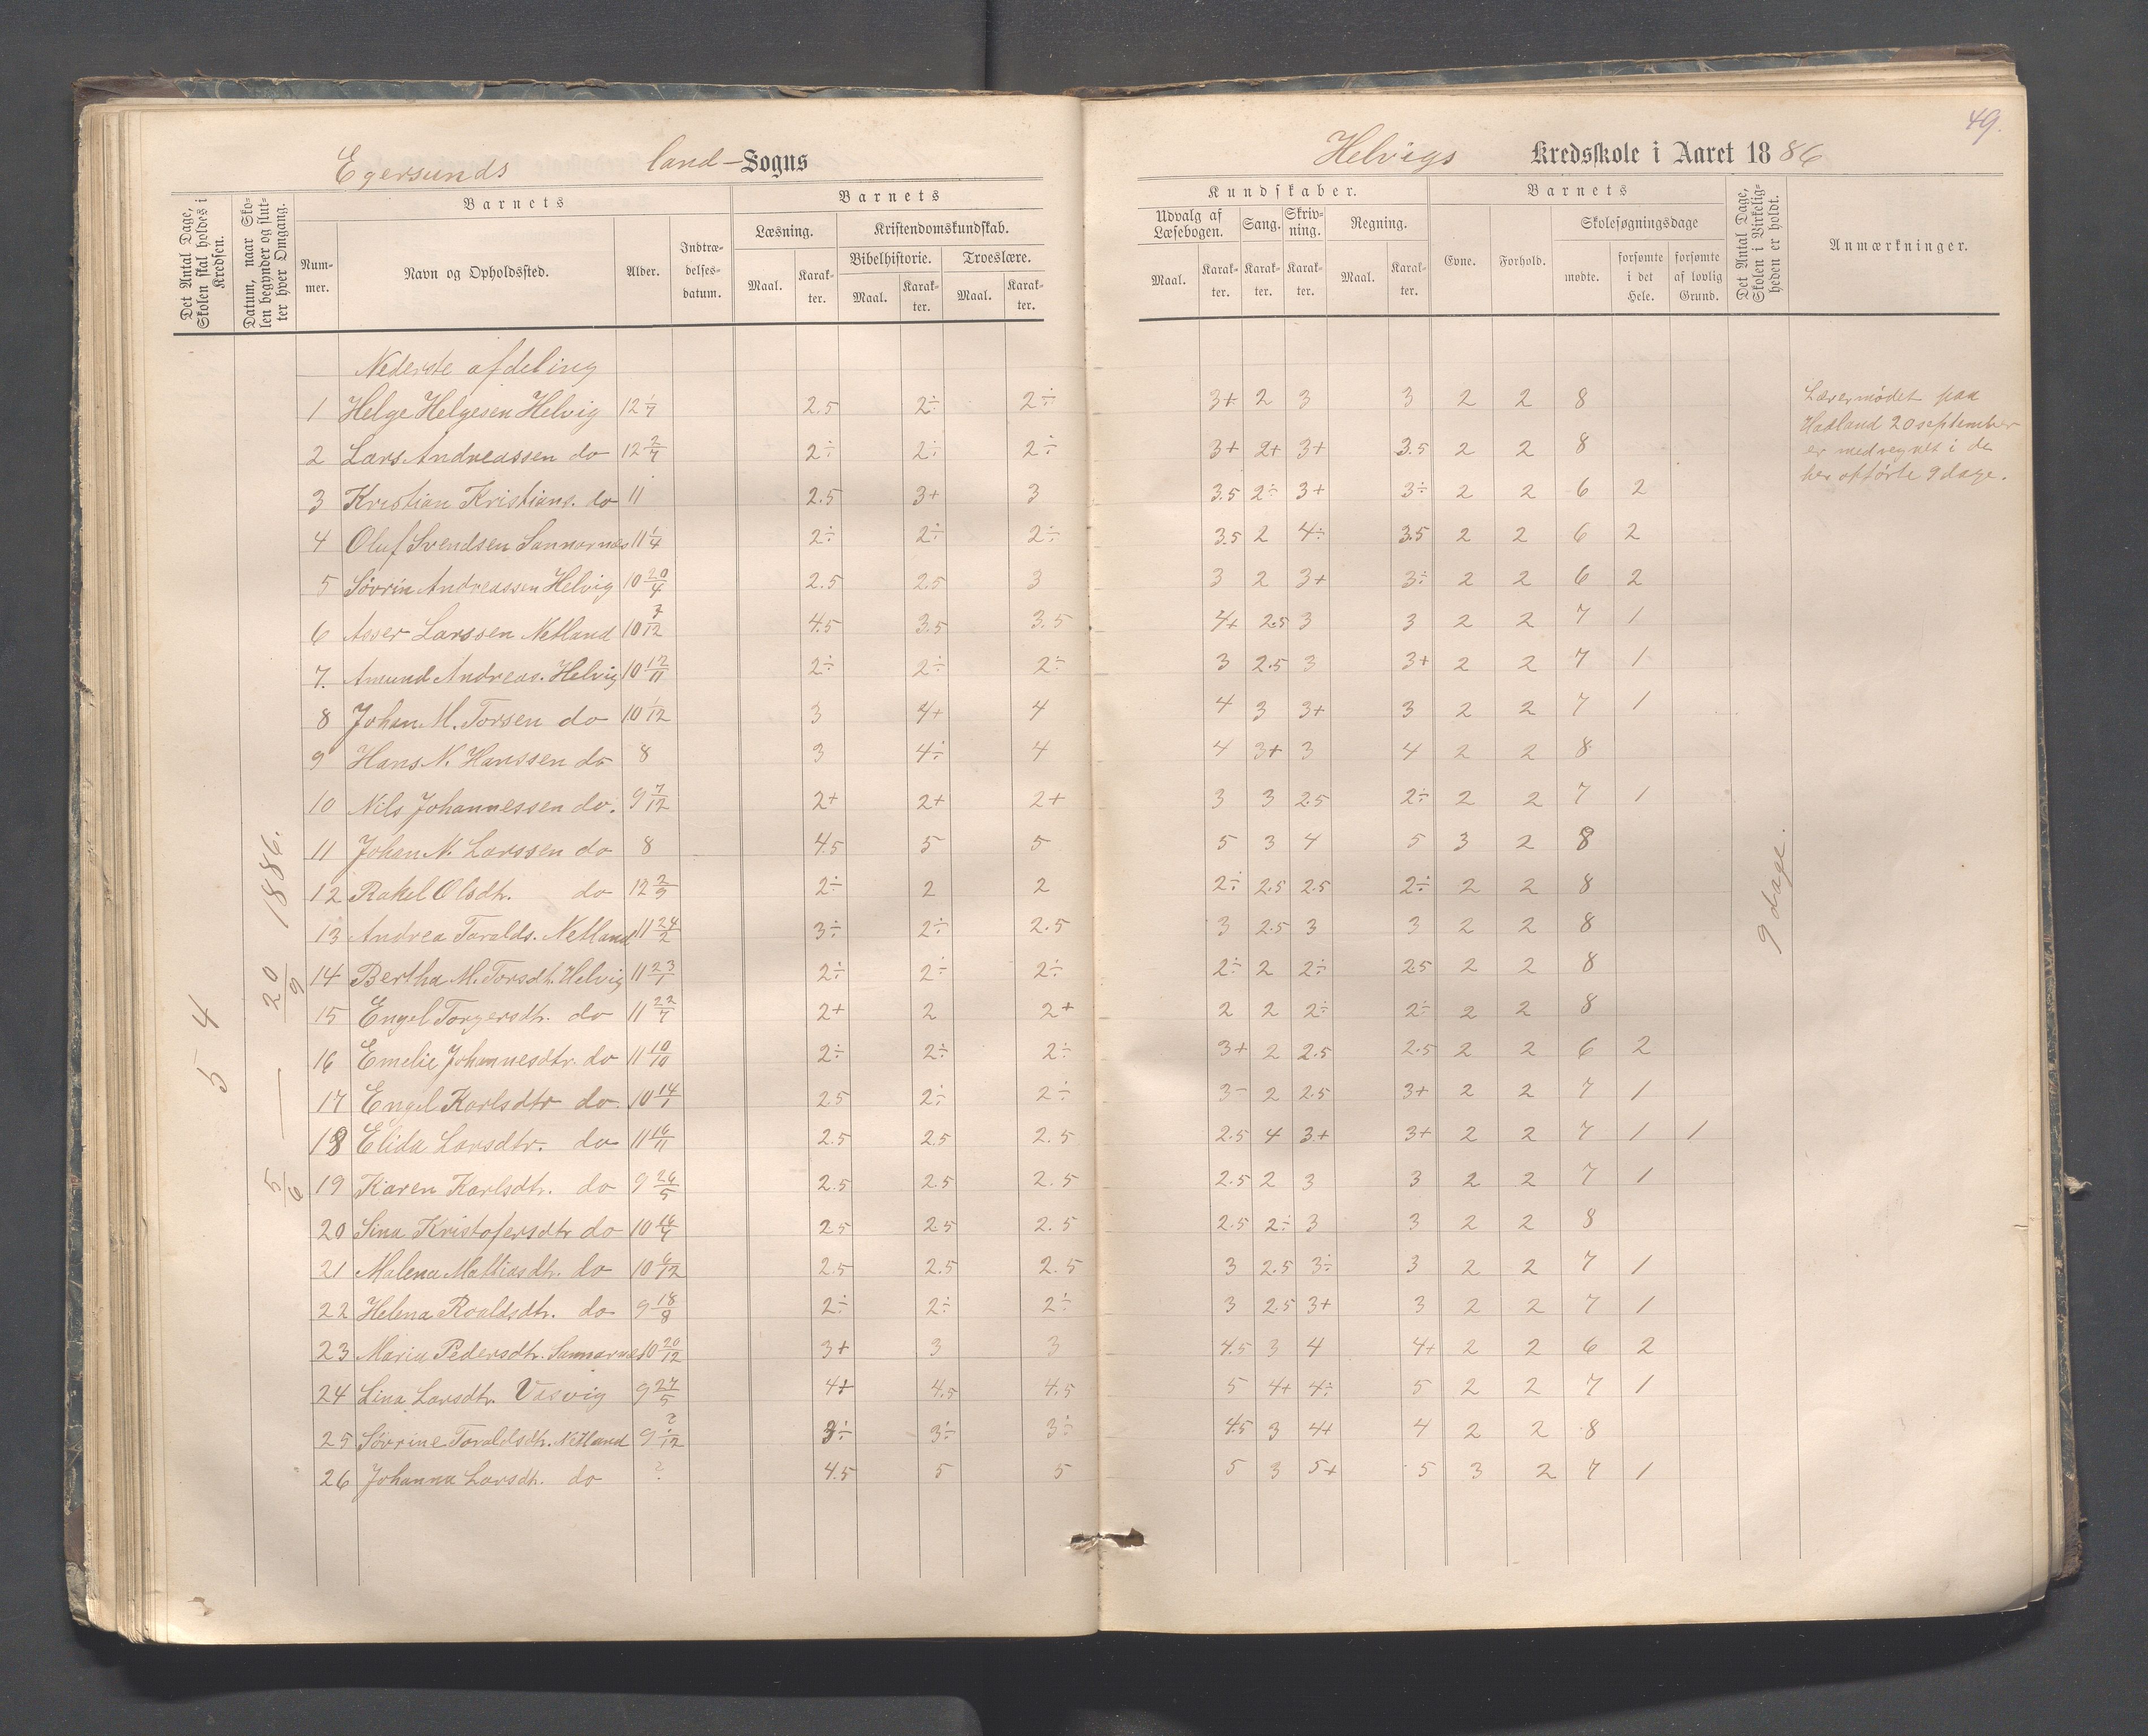 49.
Egersunds land-Sogns
Helvigs Kredsskole i Aaret 1886
Det Antal Dage, Skolen skal holdes i Kredsen.
Datum, naar Skolen begynder og slutter hver Omgang.
Barnets
Nummer.
Navn og Opholdssted.
Alder.
Indtrædelsesdatum.
Barnets
Læsning.
Kristendomskundskab.
Bibelhistorie.
Troeslære.
Maal. Karakter. Maal. Karakter. Maal. Karakter.
Kundskaber.
Udvalg af Læsebogen. Sang. Skrivning. Regning.
Maal. Karakter. Karakter. Karakter. Maal. Karakter.
Barnets
Evne. Forhold.
Skolesøgningsdage
mødte. forsømte i det Hele. forsømte af lovlig Grund.
Det Antal Dage, Skolen i Virkeligheden er holdt.
Anmærkninger.
54
5/6 — 20/9 1886.
Nederste afdeling
1 Helge Helgesen Helvig 12 1/7 2.5 2÷ 2÷ 3+ 2 3 3 2 2 8
2 Lars Andreassen do 12 2/7 2÷ 2÷ 2÷ 3+ 2+ 3+ 3.5 2 2 8
3 Kristian Kristians. do 11 2.5 3+ 3 3.5 2÷ 3+ 3÷ 2 2 6 2
4 Oluf Svendsen Sannarnes 11 1/4 2÷ 2÷ 2÷ 3.5 2 4÷ 3.5 2 2 6 2
5 Sövrin Andreassen Helvig 10 20/4 2.5 2.5 3 3 2 3+ 3÷ 2 2 6 2
6 Asser Larssen Netland 10 3/12 4.5 3.5 3.5 4+ 2.5 3 3 2 2 7 1
7. Amund Andreas. Helvig 10 12/11 2÷ 2÷ 2÷ 3 2.5 3 3+ 2 2 7 1
8 Johan M. Torsen do 10 1/12 3 4+ 4 4 3 3+ 3 2 2 7 1
9 Hans N. Hanssen do 8 3 4÷ 4 4 3+ 3 4 2 2 8
10 Nils Johannessen do. 9 7/12 2+ 2+ 2+ 3 3 2.5 2÷ 2 2 7 1
11 Johan N. Larssen do 8 4.5 5 5 5 3 4 5 3 2 8
12 Rakel Olsdtr. do 12 2/9 2÷ 2 2 2÷ 2.5 2.5 2÷ 2 2 8
13 Andrea Taralds. Netland 11 24/2 3÷ 2÷ 2.5 3 2.5 3 3 2 2 8
14 Bertha M. Torsdtr. Helvig 11 23/1 2÷ 2÷ 2÷ 2÷ 2 2÷ 2.5 2 2 8
15 Engel Torgersdtr. do 11 22/7 2+ 2 2+ 2 2 2÷ 2÷ 2 2 8
16 Emelie Johannesdtr. do 11 10/10 2÷ 2÷ 2÷ 3+ 2 2.5 2.5 2 2 6 2
17 Engel Karlsdtr do. 10 14/1 2.5 2÷ 2÷ 3- 2 2.5 3+ 2 2 7 1
18 Elida Larsdtr. do 11 16/11 2.5 2.5 2.5 2.5 4 3+ 3+ 2 2 7 1 1
19 Karen Karlsdtr. do 9 26/5 2.5 2.5 2.5 2.5 2 3 3 2 2 7 1
20 Sina Kristofersdtr do 10 16/4 2.5 2.5 2.5 2.5 2÷ 3 3 2 2 8
21 Malena Mattiasdtr. do 10 6/12 2.5 2.5 2.5 3 2.5 3÷ 3 2 2 7 1
22 Helena Roaldsdtr. do 9 18/8 2÷ 2÷ 2÷ 3 2.5 3+ 3 2 2 7 1
23 Maria Pedersdtr. Sannarnes 10 20/12 3+ 3 3 4.5 3 4 4+ 2 2 6 2
24 Lina Larsdtr. Vasvig 9 27/5 4+ 4.5 4.5 5 4+ 4÷ 5 2 2 7 1
25 Sövrine Taraldsdtr. Netland 9 ?/12 3÷ 3÷ 3÷ 4.5 3 4+ 4 2 2 8
26 Johanna Larsdtr. do ? 4.5 5 5 5 3 5+ 5 3 2 7 1
9 dage.
Lærermødet paa
Hadland 20 september
er medregnet i de
her opførte 9 dage.